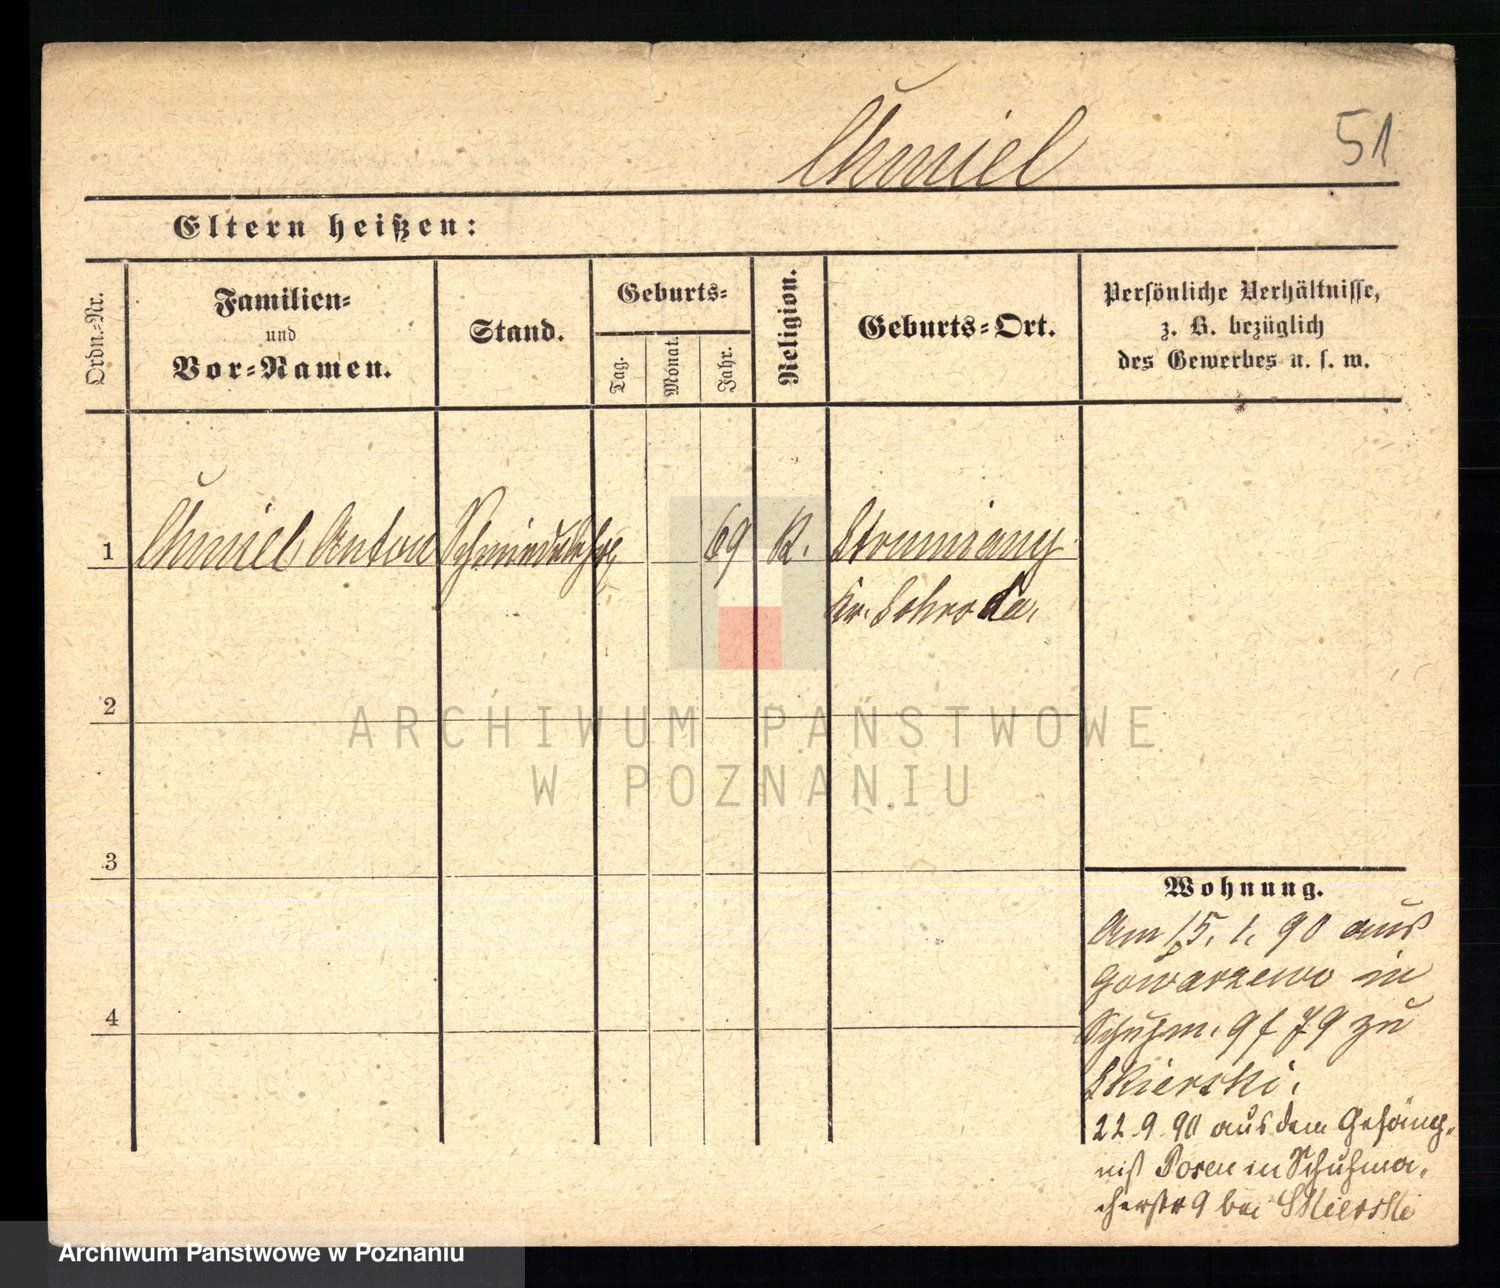 Chmiel
51
Eltern heißen:
Ordn.-Nr.
Familien-
und
Vor-Namen.
Stand.
Geburts-
Tag.
Monat.
Jahr.
Religion.
Geburts-Ort.
Persönliche Verhältnisse,
z. B. bezüglich
des Gewerbes u. s. w.
1
Chmiel Anton
69
K.
Strumiany
Kr. Schroda.
2
3
4
Wohnung.
Am 15. 1. 90 aus
Gowarzewo in
Schuhm. 9 f 79 zu
Skierski.
22. 9. 90 aus dem Gefäng-
niß Posen in Schuhma-
cherstr 9 bei Skierski
ARCHIWUM PAŃSTWOWE
W POZNANIU
Archiwum Państwowe w Poznaniu